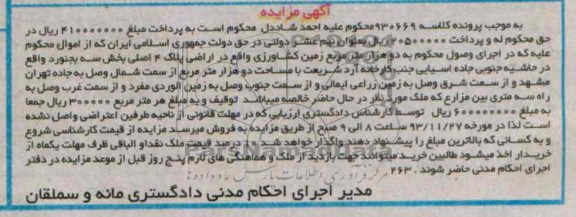 آگهی مزایده
به موجب پرونده کلاسه ۹۳۰۶۶۹ محکوم علیه احمد شاددل محکوم است به پرداخت مبلغ ۴۱۰۰۰۰۰۰۰ ریال در
حق محکوم له و پرداخت ۲۰۵۰۰۰۰۰ ریال بعنوان نیم عشر دولتی در حق دولت جمهوری اسلامی ایران که از اموال محکوم
علیه که در اجرای وصول محکوم به دو هزار متر مربع زمین کشاورزی واقع در اراضی پلاک ۴ اصلی بخش سه بجنورد واقع
در حاشیه جنوبی جاده آسیابی جنب کارخانه آرد شریعت با مساحت دو هزار متر مربع از سمت شمال وصل به جاده تهران
مشهد و از سمت شرق وصل به زمین زراعی ایمانی و از سمت جنوب وصل به زمین الوردی مفرد و از سمت غرب وصل به
راه سه متری بین مزارع که ملک مورد نظر در حال حاضر خالصه میباشد توقیف و به مبلغ هر متر مربع ۳۰۰۰۰۰ ریال جمعا
به مبلغ ۶۰۰۰۰۰۰۰۰ ریال توسط کارشناس دادگستری ارزیابی که در مهلت قانونی از ناحیه طرفین اعتراضی واصل نشده
است لذا در مورخه ۹۳/۱۱/۲۷ ساعت ۸ الی ۹ صبح از طریق مزایده به فروش میرسد مزایده از قیمت کارشناسی شروع
و به کسانی که بالاترین مبلغ را پیشنهاد دهند واگذار خواهد شد ده درصد قیمت ملک نقدا و الباقی ظرف مهلت یکماه از
خریدار اخذ میشود طالبین خرید میتوانند جهت بازدید از ملک و هماهنگی های لازم پنج روز قبل از موعد مزایده در دفتر
اجرای احکام مدنی حاضر شوند . ۲۶۳
مدیر اجرای احکام مدنی دادگستری مانه و سملقان